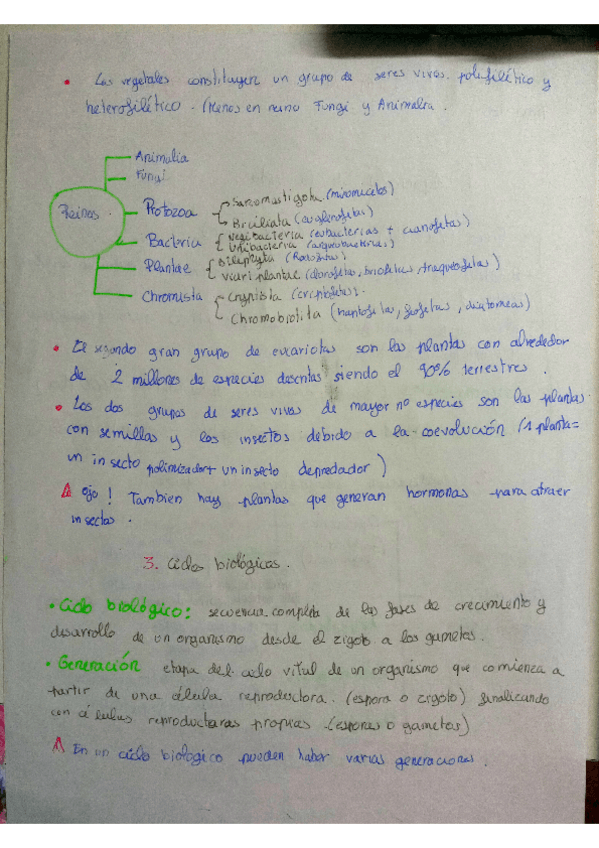 • Los vegetales constituyen un grupo de seres vivos polifilético y
heterofilético. (Menos en reino Fungi y Animalia.
Animalia
Fungi
Reinos.
Protozoa
Sarcomastigota (mixomicetes)
Biciliata (euglenofetas)
Bacteria
Negibacteria (eubacterias + cianofetas)
Unibacteria (arqueobacterias)
Plantae
Biliphyta (Rodofetas)
Viridiplantae (clorofetas, briofetas, traqueofetas)
Chromista
Cryptista (criptofetas).
Chromobiotita (haptofetas, diatomeas)
• El segundo gran grupo de eucariotas son las plantas con alrededor
de 2 millones de especies descritas siendo el 90% terrestres.
• Los dos grupos de seres vivos de mayor nº especies son las plantas
con semillas y los insectos debido a la coevolución (1 planta=
un insecto polinizador + un insecto depredador)
ojo! Tambien hay plantas que generan hormonas para atraer
insectos.
3. Ciclos biológicos.
• Ciclo biológico: secuencia completa de las fases de crecimiento y
desarrollo de un organismo desde el zigoto a los gametos.
• Generación etapa del ciclo vital de un organismo que comienza a
partir de una célula reproductora. (espora o zigoto) finalizando
con células reproductoras propias (esporas o gametos)
En un ciclo biologico pueden haber varias generaciones.